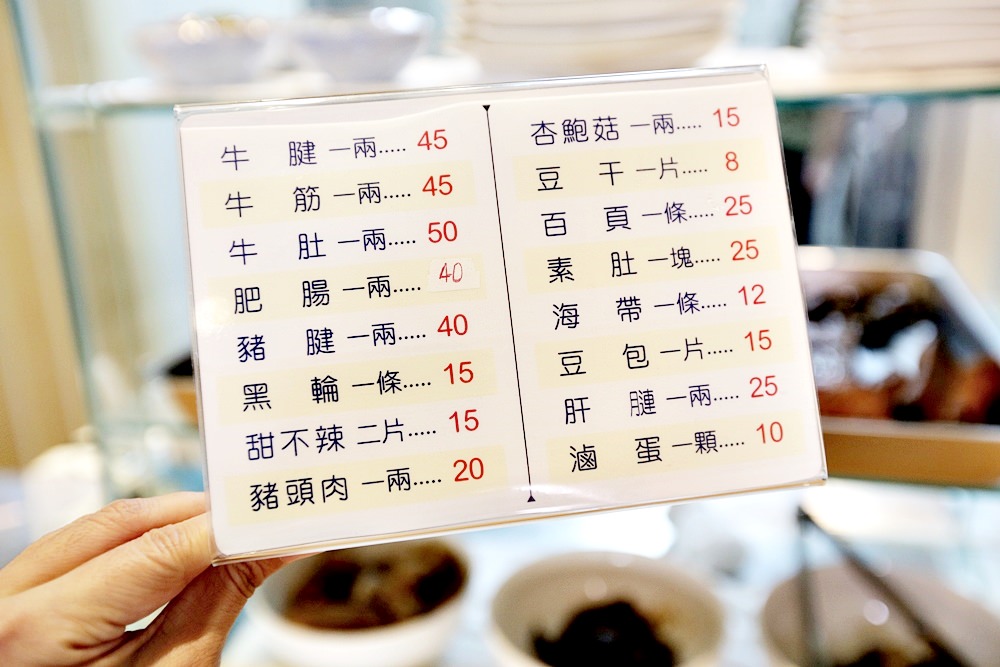 牛 腱 一兩..... 45
牛 筋 一兩..... 45
牛 肚 一兩..... 50
肥 腸 一兩..... 40
豬 腱 一兩..... 40
黑 輪 一條..... 15
甜不辣 二片..... 15
豬頭肉 一兩..... 20
杏鮑菇 一兩..... 15
豆 干 一片..... 8
百 頁 一條..... 25
素 肚 一塊..... 25
海 帶 一條..... 12
豆 包 一片..... 15
肝 膁 一兩..... 25
滷 蛋 一顆..... 10